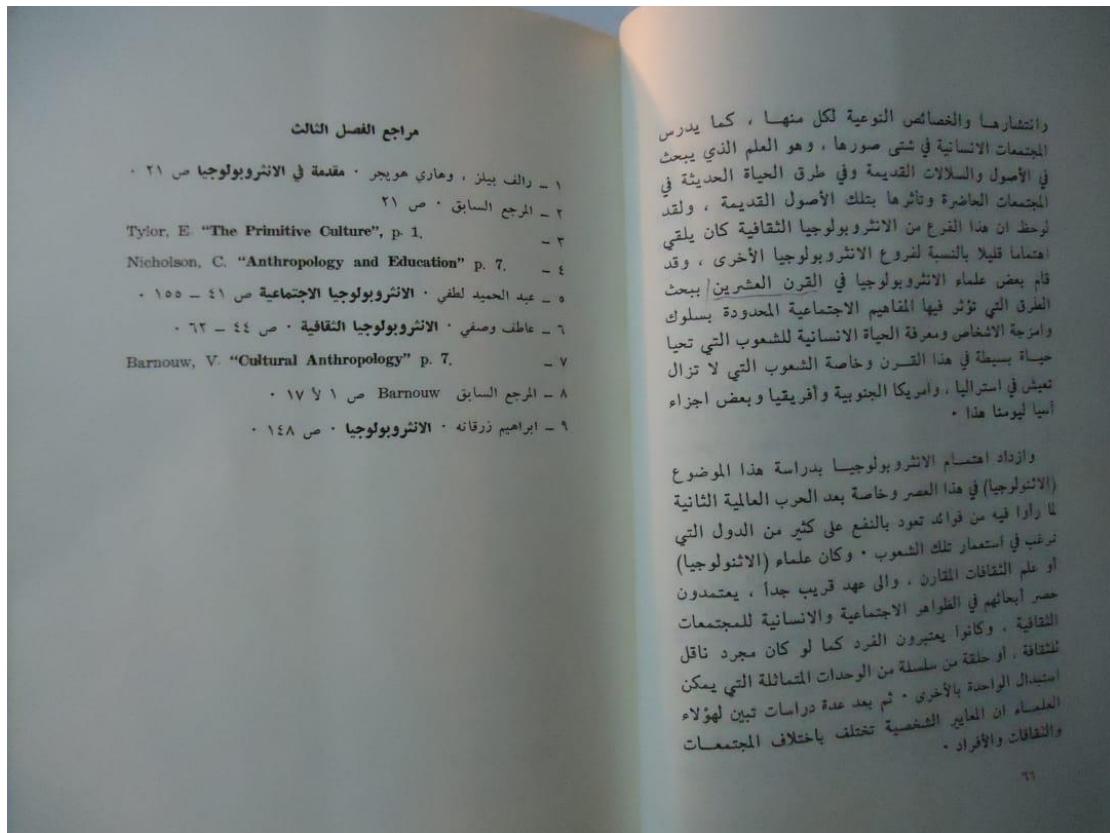 وانتشارهـا والخصائص النوعية لكل منهـا ، كما يدرس
المجتمعات الانسانية في شتى صورها ، وهو العلم الذي يبحث
في الأصول والسلالات القديمة وفي طرق الحياة الحديثة في
المجتمعات الحاضرة وتأثرها بتلك الأصول القديمة ، ولقد
لوحظ ان هذا الفرع من الانثروبولوجيا الثقافية كان يلقي
اهتماما قليلا بالنسبة لفروع الانثروبولوجيا الأخرى ، وقد
قام بعض علماء الانثروبولوجيا في القرن العشرين ببحث
الطرق التي تؤثر فيها المفاهيم الاجتماعية المحدودة بسلوك
وامزجة الاشخاص ومعرفة الحياة الانسانية للشعوب التي تحيا
حيـاة بسيطة في هذا القـرن وخاصة الشعوب التي لا تزال
تعيش في استراليا ، وامريكا الجنوبية وأفريقيا وبعض اجزاء
آسيا ليومنا هذا ·
وازداد اهتمـام الانثروبولوجيـا بدراسة هذا الموضوع
(الاثنولوجيا) في هذا العصر وخاصة بعد الحرب العالمية الثانية
لما رأوا فيه من فوائد تعود بالنفع على كثير من الدول التي
ترغب في استعمار تلك الشعوب · وكان علماء (الاثنولوجيا)
أو علم الثقافات المقارن ، والى عهد قريب جداً ، يعتمدون
حصر أبحاثهم في الظواهر الاجتماعية والانسانية للمجتمعات
الثقافية ، وكانوا يعتبرون الفرد كما لو كان مجرد ناقل
للثقافة ، أو حلقة من سلسلة من الوحدات المتماثلة التي يمكن
استبدال الواحدة بالأخرى · ثم بعد عدة دراسات تبين لهؤلاء
العلمـاء ان المعايير الشخصية تختلف باختلاف المجتمعـات
والثقافات والأفراد ·
٦١
مراجع الفصل الثالث
١ ــ رالف بيلز ، وهاري هويجر · مقدمة في الانثروبولوجيا ص ٢١ ·
٢ ــ المرجع السابق · ص ٢١
٣ ــ Tylor, E. "The Primitive Culture", p. 1.
٤ ــ Nicholson, C. "Anthropology and Education" p. 7.
٥ ــ عبد الحميد لطفي · الانثروبولوجيا الاجتماعية ص ٤١ ــ ١٥٥ ·
٦ ــ عاطف وصفي · الانثروبولوجيا الثقافية · ص ٤٤ ــ ٦٢ ·
٧ ــ Barnouw, V. "Cultural Anthropology" p. 7.
٨ ــ المرجع السابق Barnouw ص ١ لأ ١٧ ·
٩ ــ ابراهيم زرقانه · الانثروبولوجيا · ص ١٤٨ ·